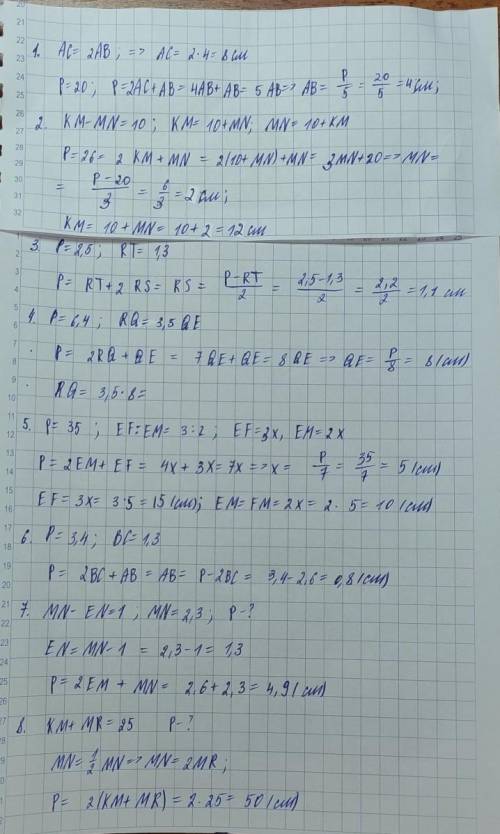 1. AC = 2AB ; => AC = 2·4 = 8 см
P=20 ; P=2AC+AB = 4AB+AB = 5AB => AB = P/5 = 20/5 = 4 см;
2. KM-MN=10 ; KM=10+MN; MN=10+KM
P=26 = 2 KM+MN = 2(10+MN)+MN = 3MN+20 => MN=
= P-20/3 = 6/3 = 2 см;
KM = 10+MN = 10+2 = 12 см
3. P=2,5 ; RT=1,3
P = RT+2 RS = RS = P-RT/2 = 2,5-1,3/2 = 2,2/2 = 1,1 см
4. P=6,4 ; RQ = 3,5 QE
P = 2RQ+QE = 7QE+QE = 8QE => QE = P/8 = 8 (см)
RQ = 3,5·8=
5. P=35 ; EF:EM = 3:2 ; EF=3x, EM=2x
P=2EM+EF = 4x+3x=7x => x = P/7 = 35/7 = 5 (см)
EF=3x = 3·5=15 (см); EM=FM=2x = 2·5=10 (см)
6. P=3,4 ; BC=1,3
P = 2BC+AB = AB = P-2BC = 3,4-2,6=0,8 (см)
7. MN-EN=1 ; MN=2,3 ; P-?
EN=MN-1 = 2,3-1=1,3
P=2EM+MN = 2,6+2,3=4,9 (см)
8. KM+MR=25 P-?
MN=1/2 MN => MN=2MR;
P = 2(KM+MR) = 2·25= 50 (см)